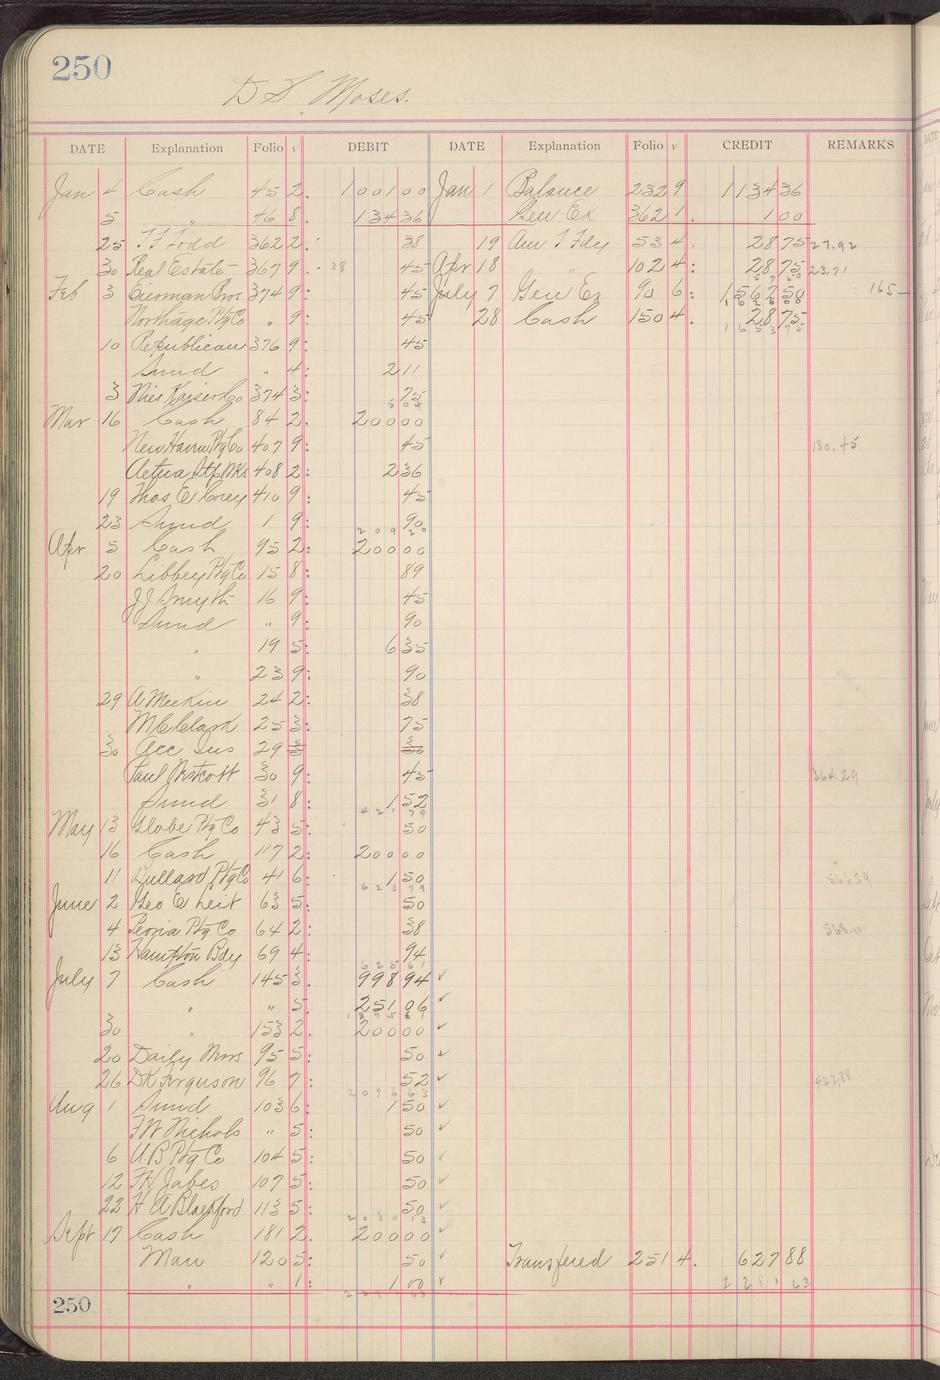 250
D S Moses.
DATE Explanation Folio √ DEBIT DATE Explanation Folio √ CREDIT REMARKS
Jan 4 Cash 45 2. 1001 00 Jan 1 Balance 232 9 1134 36
5 " 46 8. 134 36 Gen Ex 362 1. 1 00
25 T F Todd 362 2. 38 19 Am T Fdy 53 4. 28 75 27.92
30 Real Estate 367 9. 38 45 Apr 18 " 102 4: 28 75 23.71
Feb 3 Eierman Bros 374 9: 45 July 7 Gen Ex 90 6: 1562 50 165
Northage Ptg Co " 9: 45 28 Cash 150 4. 28 75
10 Republican 376 9: 45
Sund " 4: 2 11
3 Nies Kaiser Co 374 3: 75
Mar 16 Cash 84 2. 200 00
New Haven Ptg Co 407 9: 45 180.45
Aetna Stp Wks 408 2: 2 36
19 Thos E Corey 410 9: 45
23 Sund 1 9: 90
209 20
Apr 5 Cash 95 2: 200 00
20 Libbey Ptg Co 15 8: 89
J J Smyth 16 9: 45
Sund " 9: 90
" 19 5: 6 35
" 23 9: 90
29 A Meekin 24 2: 38
M C Clark 25 3: 75
30 Acc Sus 29 3 30
Paul Wstcott 30 9: 45 364.29
Sund 31 8: 1 52
421 79
May 13 Globe Ptg Co 43 5: 50
16 Cash 117 2: 200 00
11 Dullard Ptg Co 41 6: 1 50 566.29
623 79
June 2 Geo E Leit 63 5: 50
4 Peoria Ptg Co 64 2: 38 568.11
13 Hampton Bdy 69 4: 94
625 61
July 7 Cash 145 3. 998 94 ✓
" " 5. 251 06 ✓
30 " 153 2. 200 00 ✓
20 Daily News 95 5: 50 ✓
26 D K Ferguson 96 7: 52 ✓ 422.88
2076 63
Aug 1 Sund 103 6: 1 50 ✓
F W Nichols " 5: 50 ✓
6 U.B Ptg Co 104 5: 50 ✓
12 F H Jabes 107 5: 50 ✓
22 H A Blackford 113 5: 50 ✓
2080 13
Sept 17 Cash 181 2. 200 00 ✓
Man 120 5: 50 ✓ Transfered 251 4. 627 88
" " 1: 1 00 ✓ 2281 63
2281 63
250